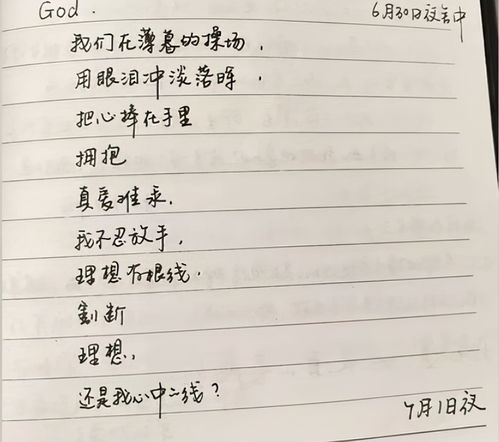 God.
6月30日夜言中
我们在薄暮的操场,
用眼泪冲淡落晖,
把心捧在手里
拥抱
真爱难永,
我不忍放手,
理想有根线,
割断
理想,
还是我心中二线?
7月1日夜